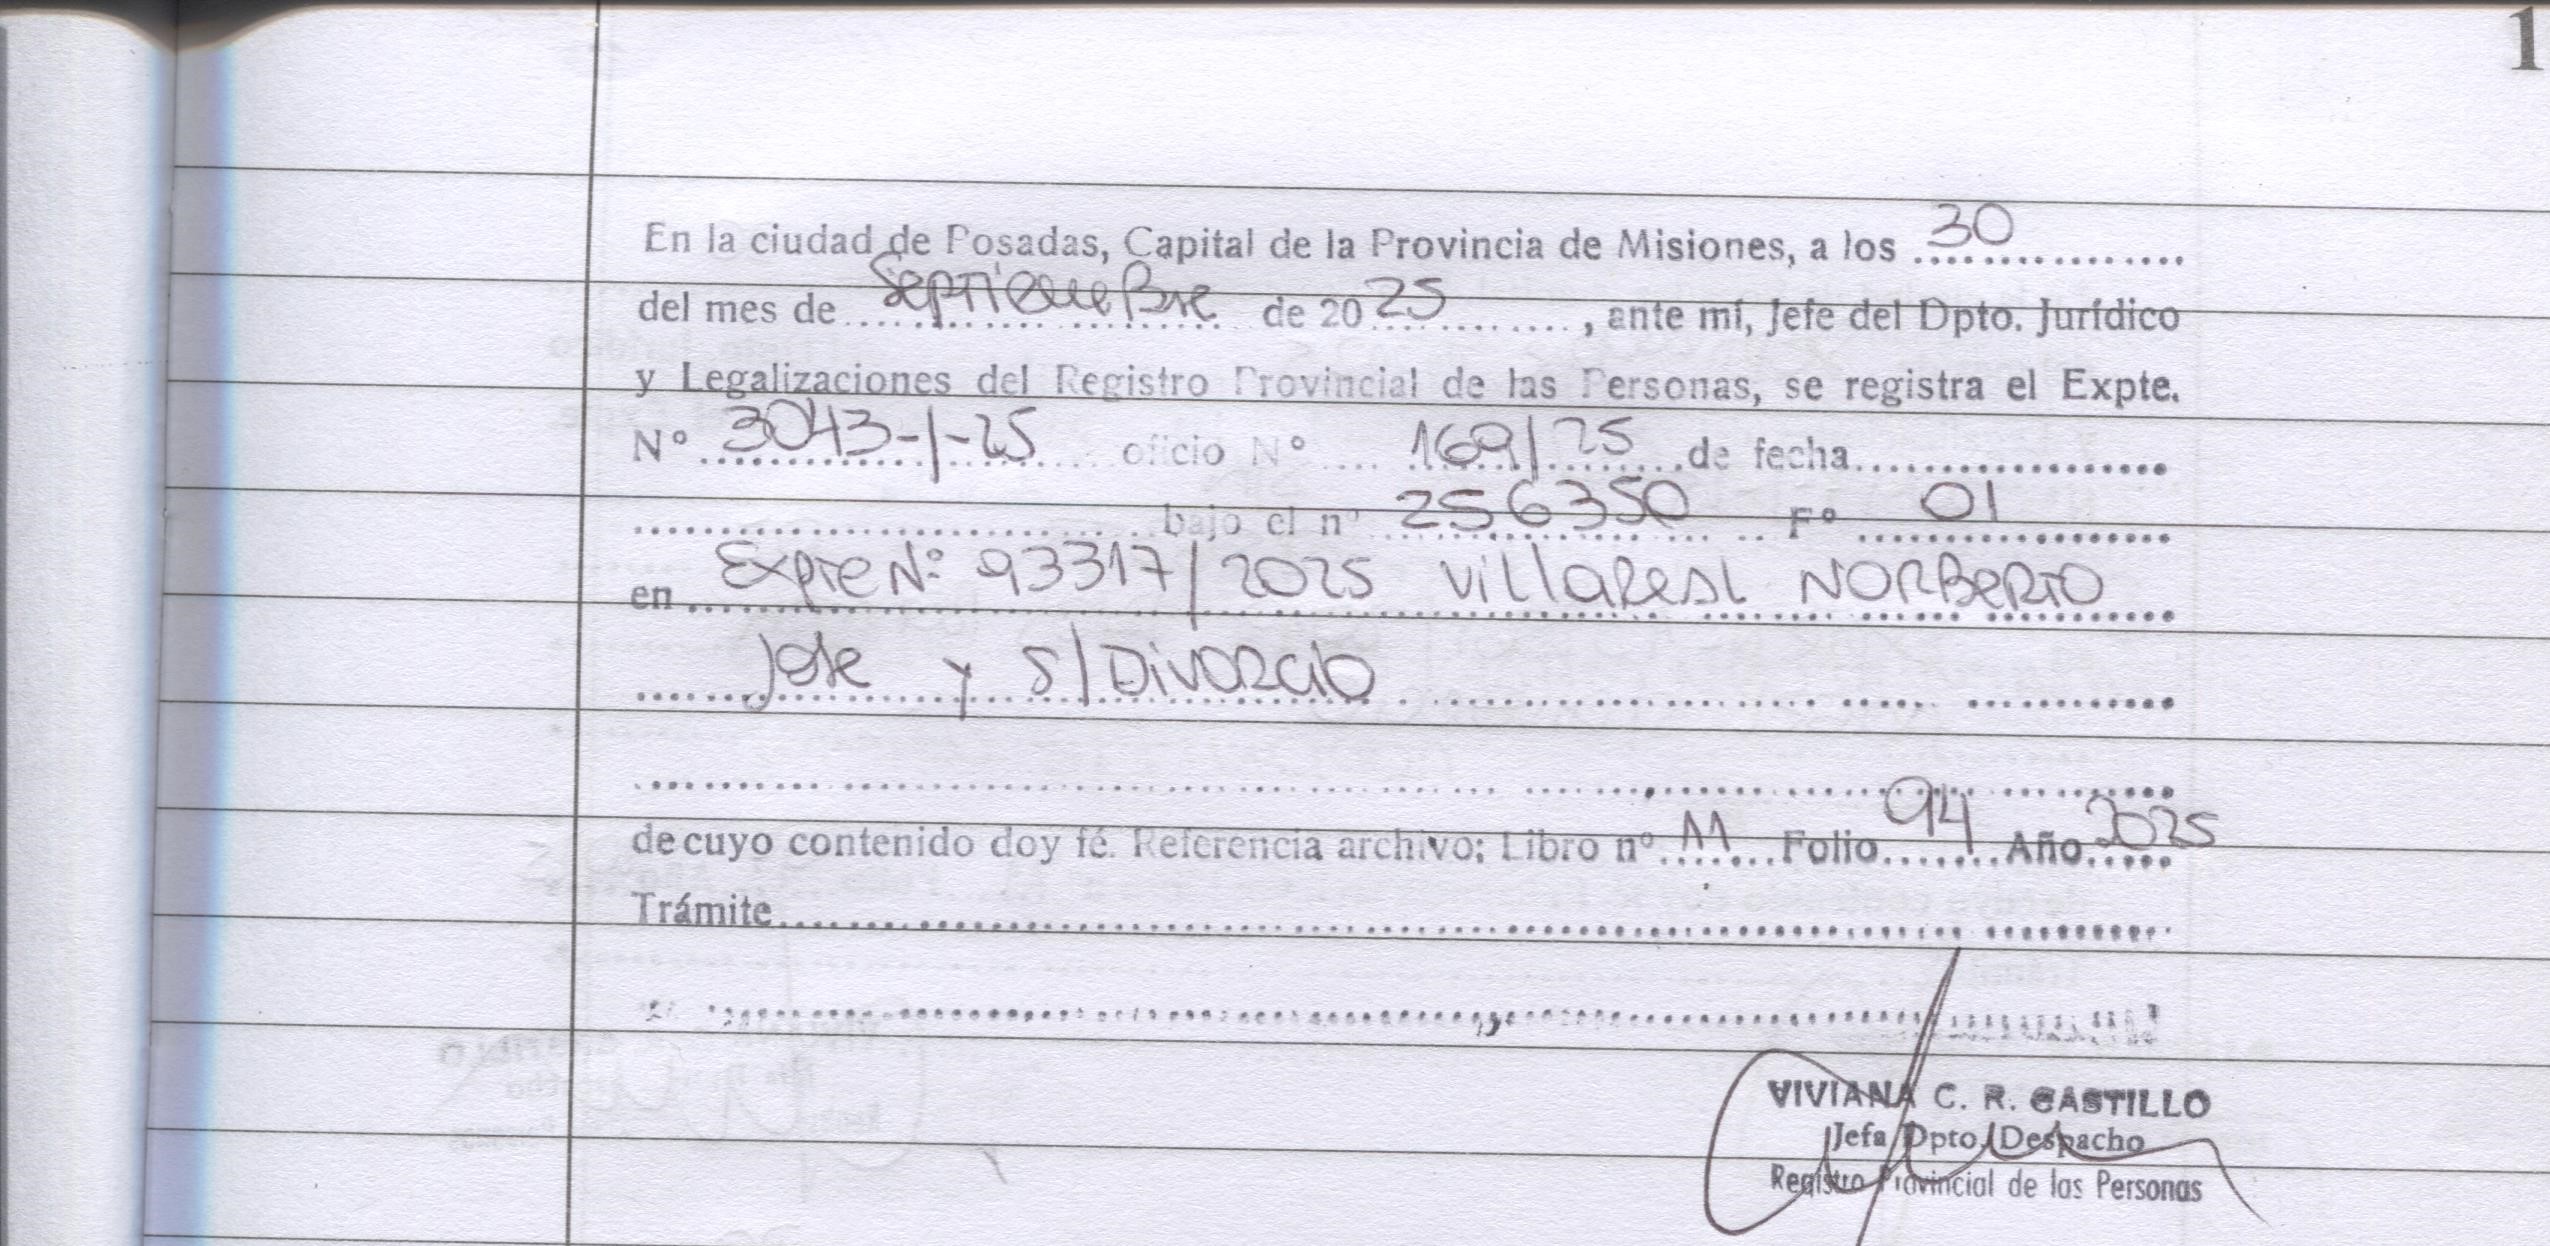 1
En la ciudad de Posadas, Capital de la Provincia de Misiones, a los 30
del mes de Septiembre de 2025, ante mí, Jefe del Dpto. Jurídico
y Legalizaciones del Registro Provincial de las Personas, se registra el Expte.
N° 3043-1-25 oficio N° 169/25 de fecha
bajo el n° 256350 F° 01
en Expte N: 93317/2025 Villalesl NORBERTO
Jose y S/Divorcio
de cuyo contenido doy fé. Referencia archivo; Libro n° M Folio 94 Año 2025
Trámite
VIVIANA C. R. CASTILLO
Jefa Dpto. Despacho
Registro Provincial de las Personas